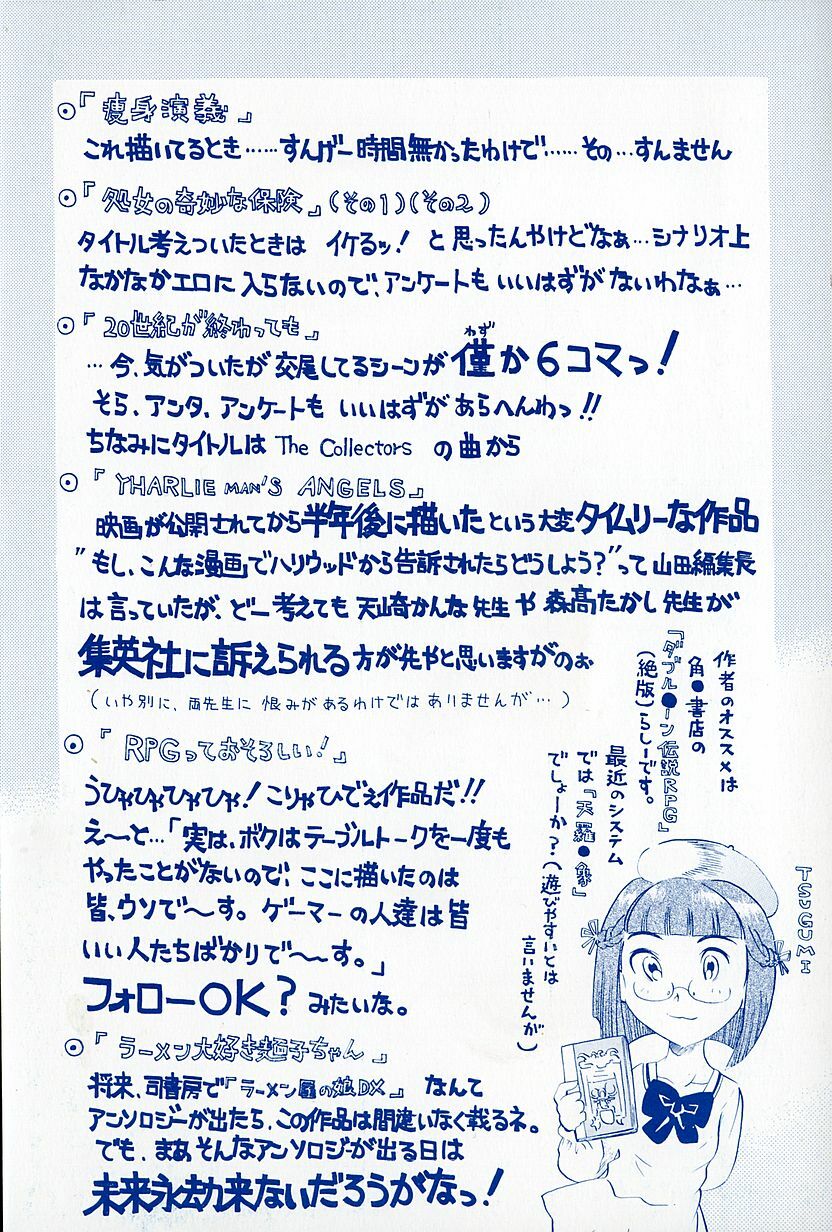 ⊙『痩身演義』
これ描いてるとき……すんげー時間無かったわけで……その…すんません
⊙『処女の奇妙な保険』(その1)(その2)
タイトル考えついたときは イケるッ! と思ったんやけどなぁ…シナリオ上
なかなかエロに入らないので、アンケートもいいはずがないわなぁ…
⊙『20世紀が終わっても』
…今、気がついたが交尾してるシーンが僅か6コマっ!
わず
そら、アンタ、アンケートもいいはずがあらへんわっ!!
ちなみにタイトルは The Collectors の曲から
⊙『YHARLIE MAN'S ANGELS』
映画が公開されてから半年後に描いたという大変タイムリーな作品
"もし、こんな漫画でハリウッドから告訴されたらどうしよう?"って山田編集長
は言っていたが、どー考えても天崎かんな先生や森髙たかし先生が
集英社に訴えられる方が先やと思いますがのぉ
(いや別に、両先生に恨みがあるわけではありませんが…)
⊙『RPGっておそろしい!』
うひゃひゃひゃひゃ!こりゃひでぇ作品だ!!
え〜と…「実は、ボクはテーブルトークを一度も
やったことがないので、ここに描いたのは
皆、ウソで〜す。ゲーマーの人達は皆
いい人たちばかりで〜〜す。」
フォローOK?みたいな。
作者のオススメは
角●書店の
『ダブル●ーン伝説RPG』
(絶版)らしーです。
最近のシステム
では「天羅●象」
でしょーか?(遊びやすいとは
言いませんが)
TSUGUMI
⊙『ラーメン大好き麺子ちゃん』
将来、司書房で『ラーメン屋の娘DX』なんて
アンソロジーが出たら、この作品は間違いなく載るネ。
でも、まぁそんなアンソロジーが出る日は
未来永劫来ないだろうがなっ!